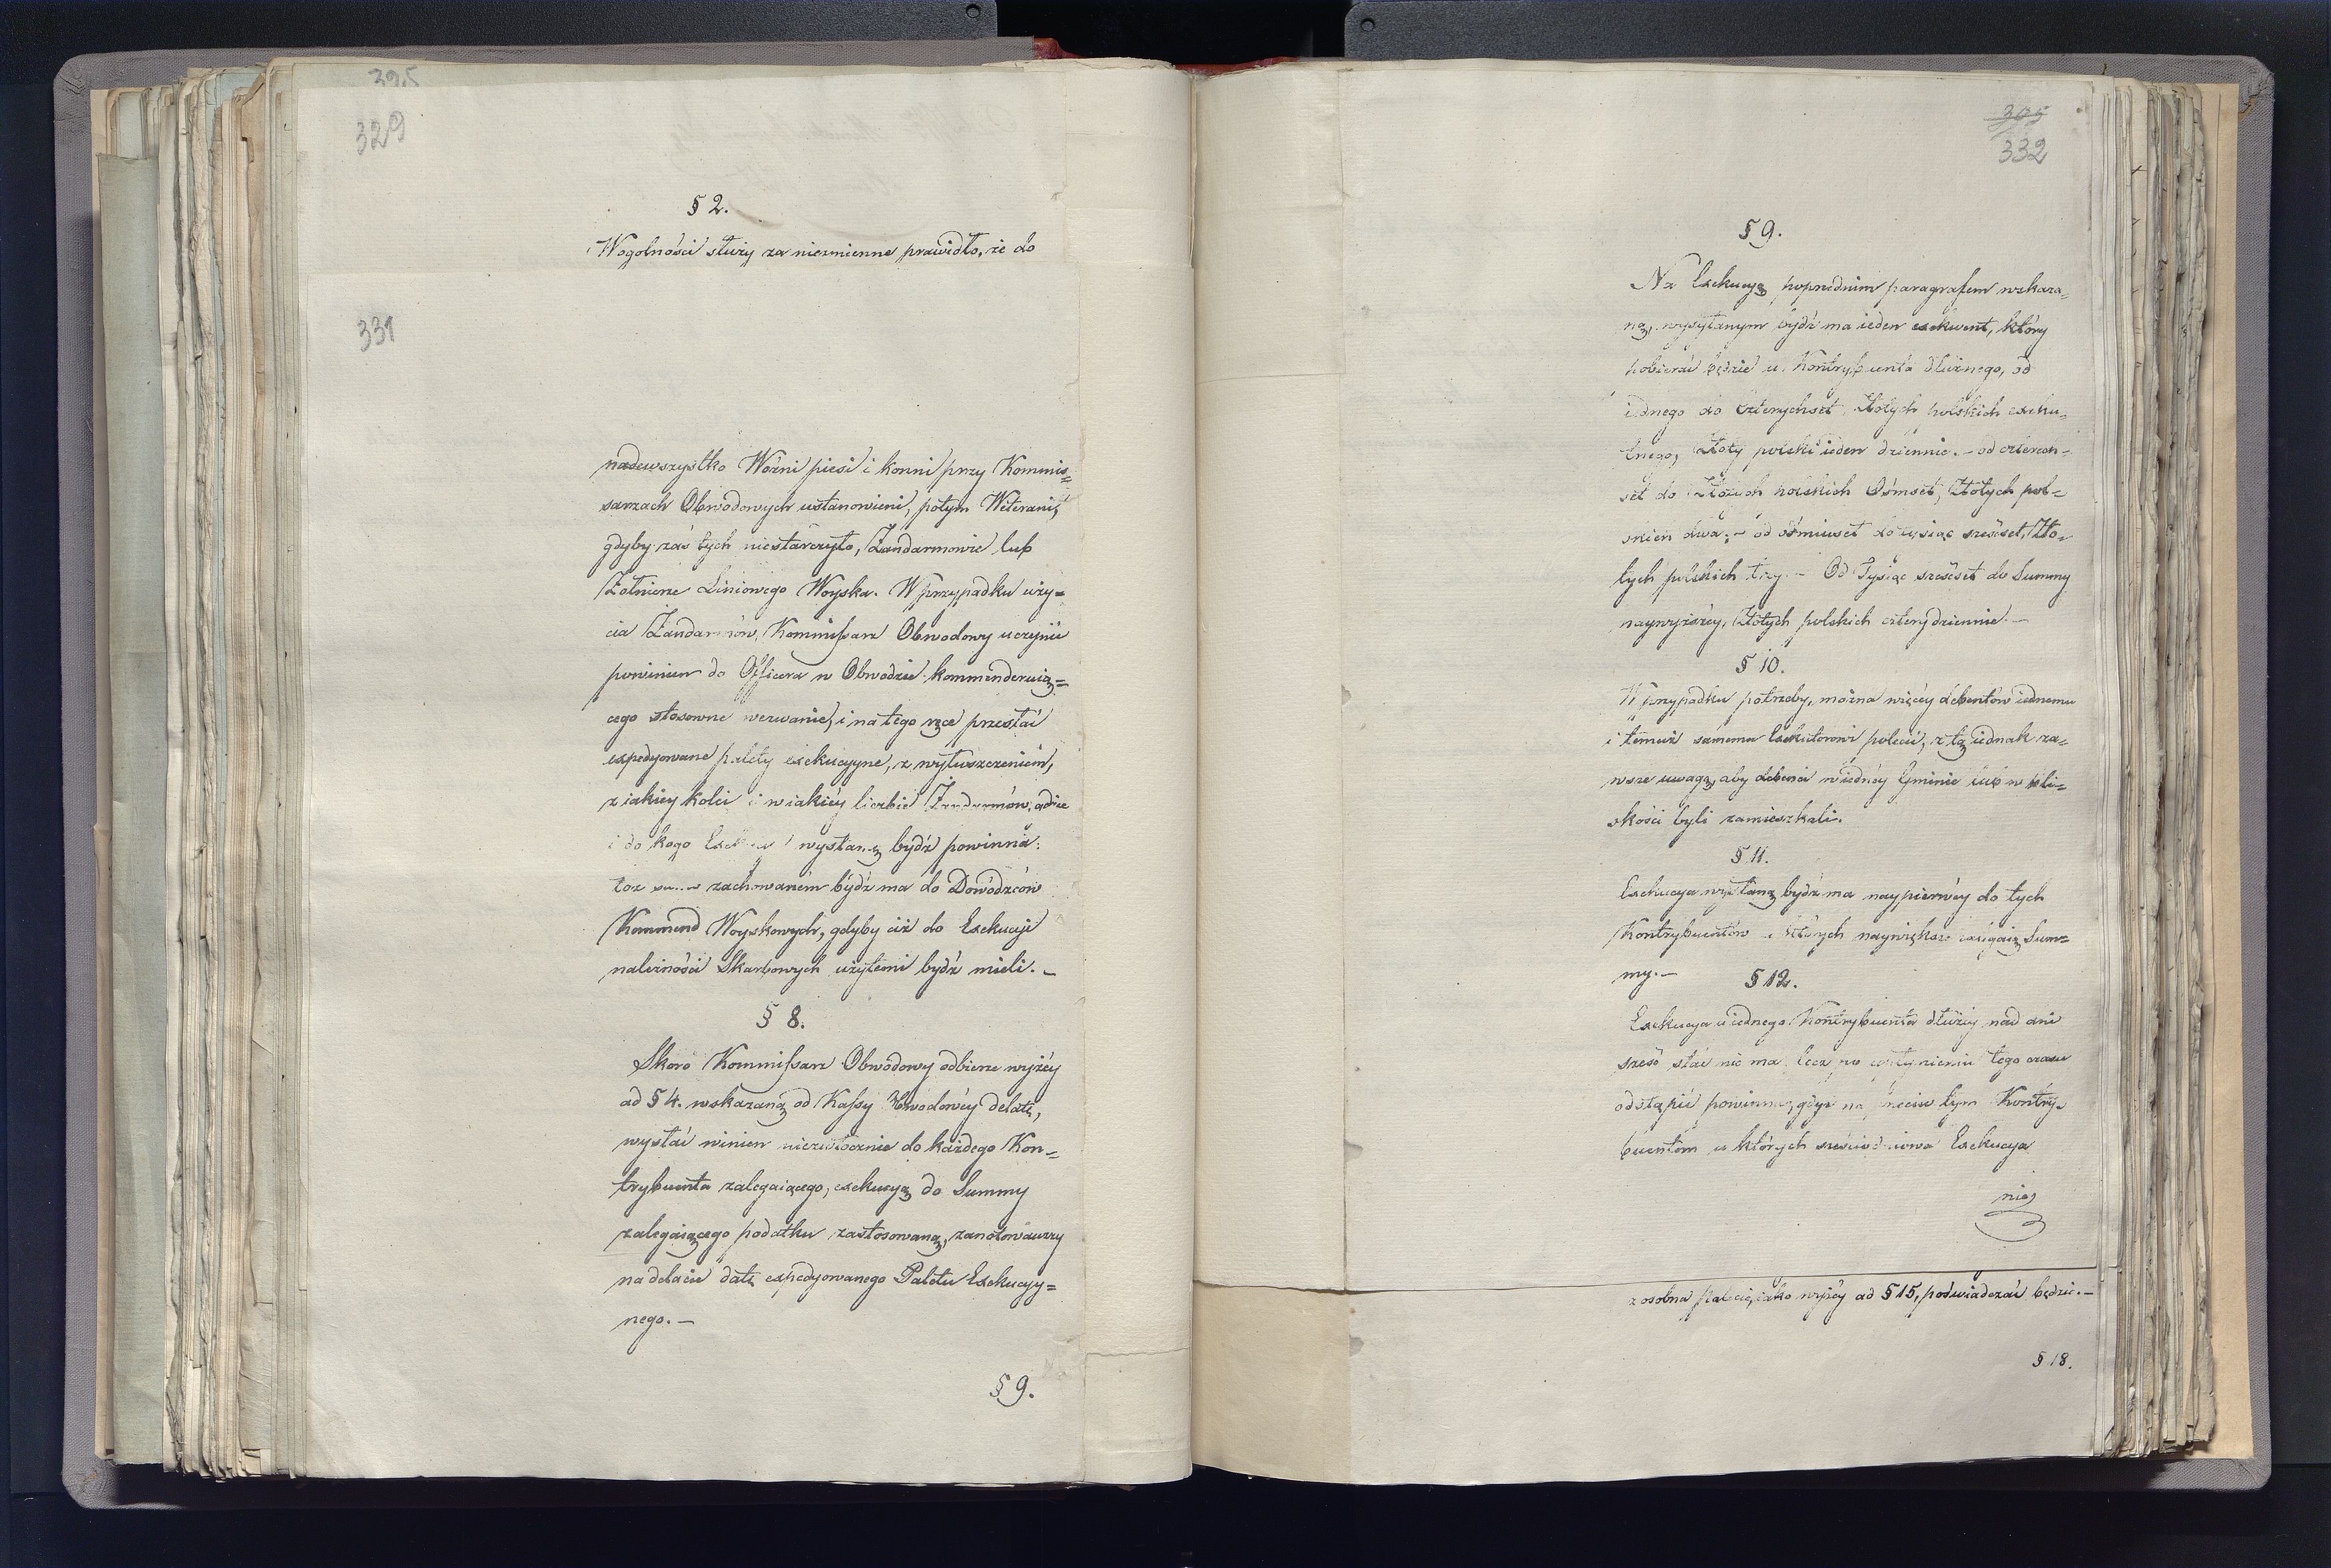 395
329
§ 2.
Wogolności służy za niezmienne prawidło, że do
331
nadewszystko Woźni piesi i konni przy Kommis=
sarzach Obwodowych ustanowieni, potym Weterani,
gdyby zaś tych niestarczyło, Żandarmowie lub
Żołnierze Liniowego Woyska. W przypadku uży=
cia Żandarmów, Kommissarz Obwodowy uczynić
powinien do Officera w Obwodzie kommenderuią=
cego stosowne wezwanie, i na tego ręce przesłać
expedyowane palety exekucyyne, z wyłuszczeniem,
z iakiey kolei i w iakiéy liczbie Żandarmów, gdzie
i do kogo wysłaną bydź powinna:
toż zachowaném bydź ma do Dowódzców
Kommend Woyskowych, gdyby ciż do Exekucji
należności Skarbowych użytemi bydź mieli. –
§ 8.
Skoro Kommissarz Obwodowy odbierze wyżéy
ad § 4. wskazaną od Kassy Obwodowéy delatę,
wysłać winien niezwłocznie do każdego Kon=
trybuenta zalegaiącego, exekucyą do Summy
zalegaiącego podatku zastosowaną, zanotowawszy
na delacie datę expedyowanego Paletu Exekucyy=
nego. –
§ 9.
305
332
§ 9.
Na Exekucyą poprednim paragrafem wskaza=
ną, wysyłanym bydź ma ieden exekwent, który
pobierać będzie u Kontrybuenta dłużnego, od
iednego do czterychset Złotych polskich exeku=
tnego, Złoty polski ieden dziennie. – od czterech=
set do Złotych polskich Ośmset, Złotych pol=
skich dwa; – od ośmiuset do tysiąc sześćset, Zło=
tych polskich trzy – Od Tysiąc sześćset do Summy
naywyższéy, Złotych polskich cztery dziennie. –
§ 10.
W przypadku potrzeby, można więcéy debentów iednemu
i temuż samemu Exekutorowi polecić, z tą iednak za=
wsze uwagą, aby debenci w iednéy Gminie lub w bli=
skości byli zamieszkali.
§ 11.
Exekucya wysłaną bydź ma naypierwéy do tych
Kontrybuentów u których naywiększe zalegaią Sum=
my. –
§ 12.
Exekucya u iednego Kontrybuenta dłużéy nad dni
sześć stać nie ma, lecz po upłynieniu tego czasu
odstąpić powinna, gdyż na przeciw tym Kontry=
buentom u których sześciodniowa Exekucya
nie
z osobna palecie, iako wyżéy ad § 15, poświadczać będzie. –
§ 18.